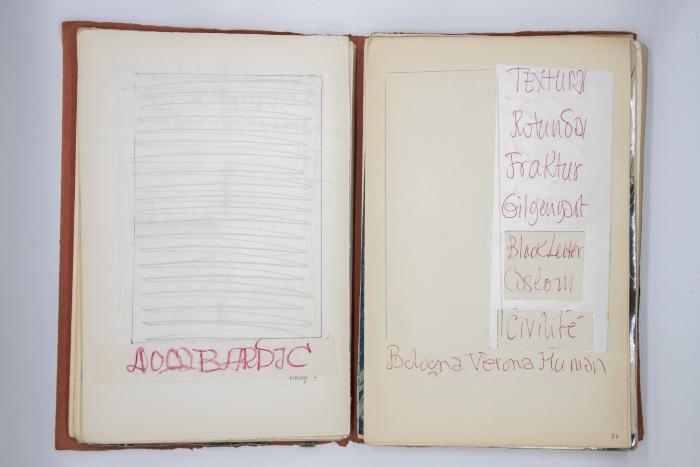 LOMBARDIC
Textura
Rotunda
Fraktur
Gilgengart
Black Letter
Caslon
Civilité
Bologna Verona Human